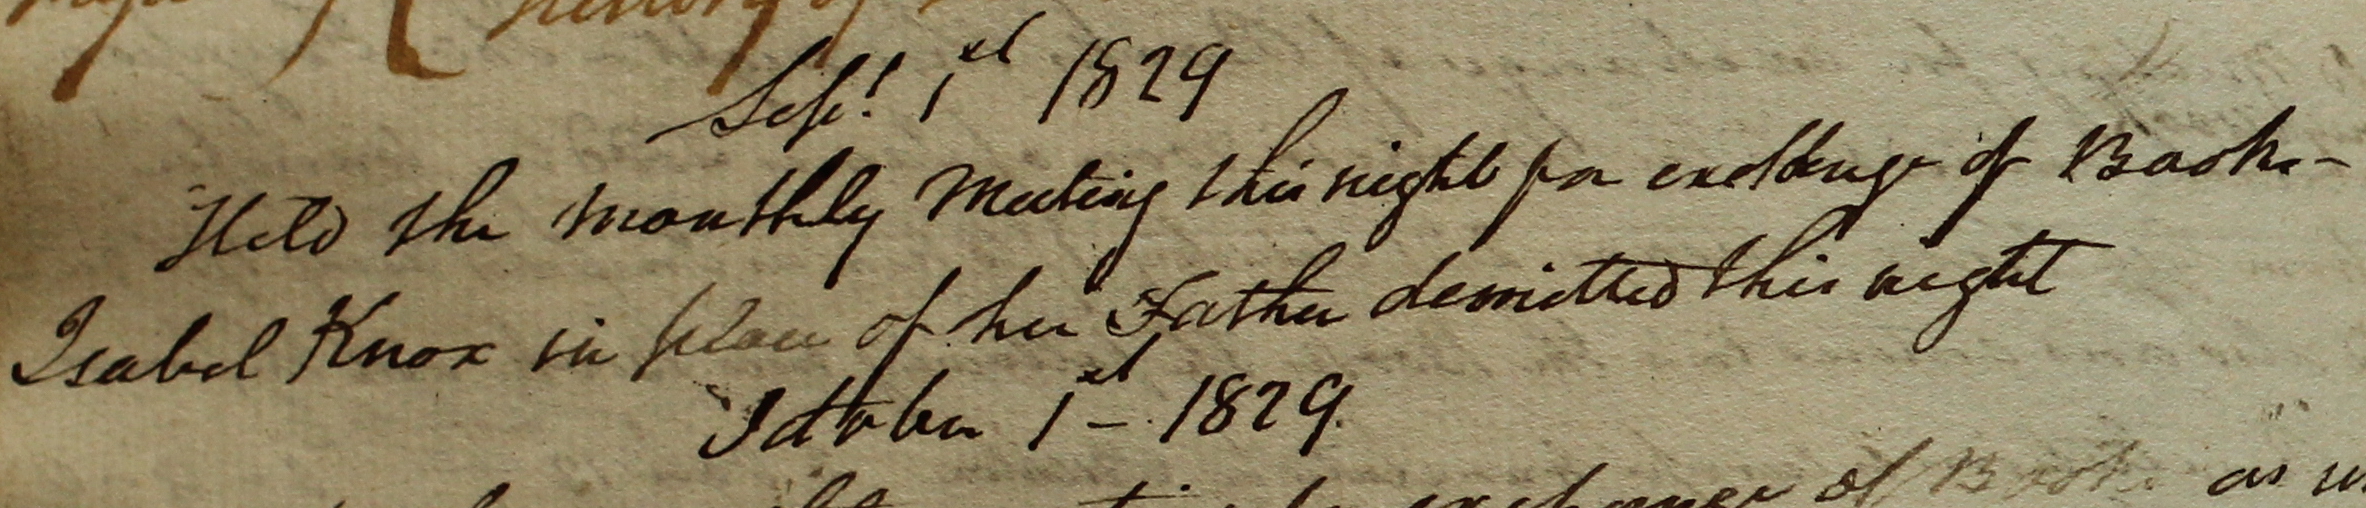 History of
Sept. 1st 1829
Held the monthly Meeting this night for exchange of Books -
Isabel Knox in place of her Father demitted this night
October 1st - 1829.
exchange of Books as